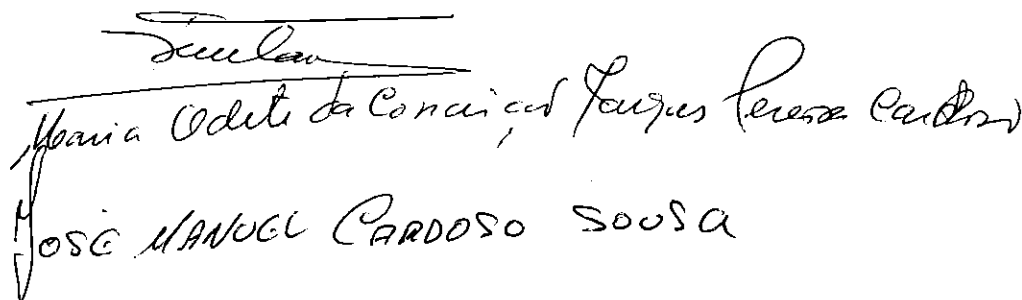 Maria Odete da Conceição Pereira Cardoso
JOSÉ MANUEL CARDOSO SOUSA